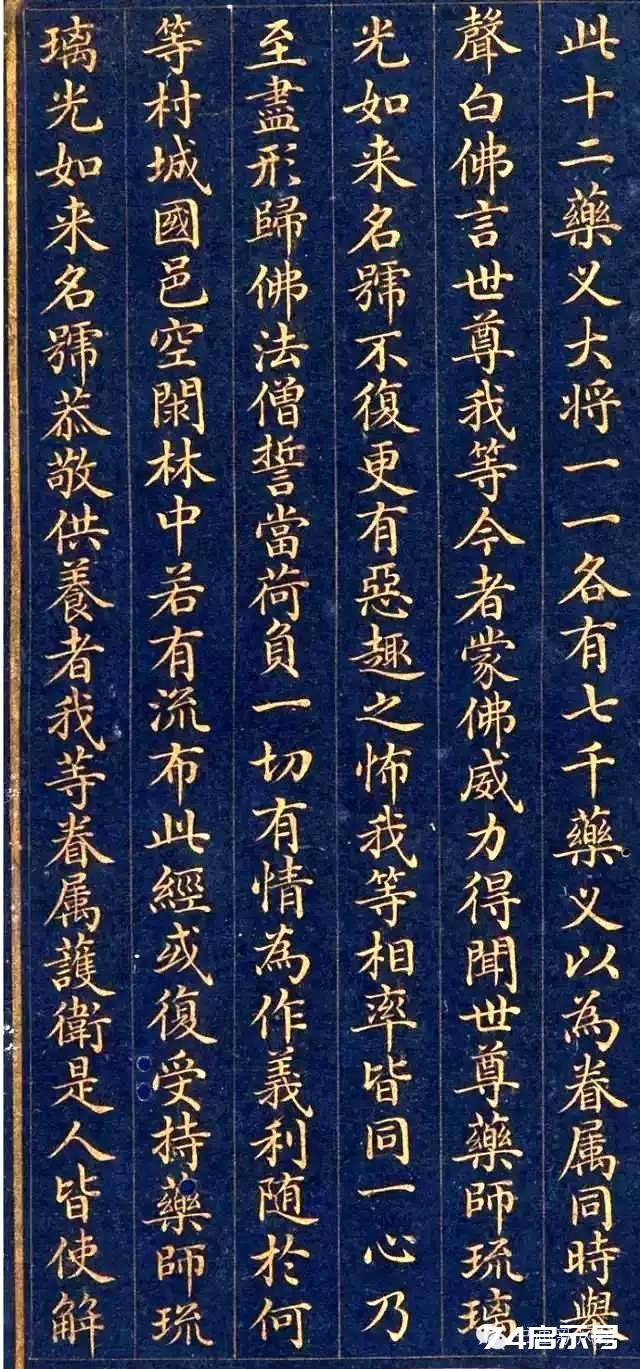 此十二藥义大将一一各有七千藥义以為眷属同時舉
聲白佛言世尊我等今者蒙佛威力得聞世尊藥師琉璃
光如来名號不復更有惡趣之怖我等相率皆同一心乃
至盡形歸佛法僧誓當荷負一切有情為作義利随於何
等村城國邑空閑林中若有流布此經或復受持藥師琉
璃光如来名號恭敬供養者我等眷属護衛是人皆使解
74启示号